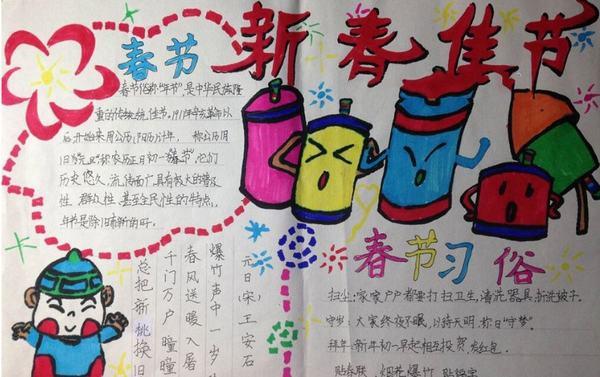 新春佳节
春节
春节俗称"年节",是中华民族隆
重的传统佳节。1911年辛亥革命以
后开始采用公历(阳历)计年。
称农历正月初一"春节"它们
历史悠久、流传面广具有极大的普及
性、群众性、甚至全民性的特点。
年节是除旧布新的
元日(宋)王安石
爆竹声中一岁
春风送暖入屠
千门万户曈曈
总把新桃换旧
春节习俗
扫尘:家家户户都要打扫卫生,清洗器具,拆洗被子。
守岁:大家终夜不眠,以待天明,称曰"守岁"。
拜年:新年初一早起相互投贺,发红包.
贴春联、烟花爆竹